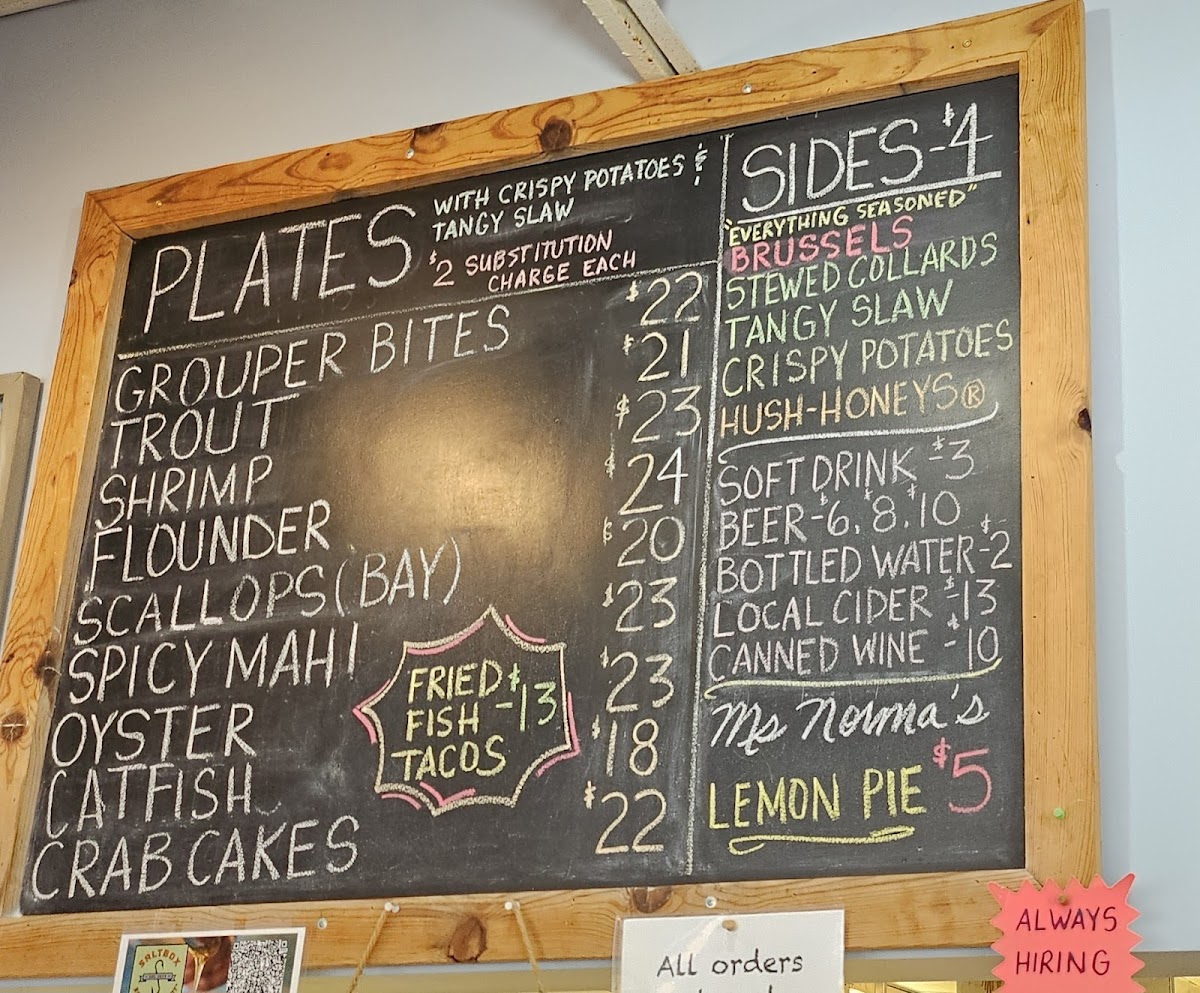 PLATES WITH CRISPY POTATOES &
TANGY SLAW
$2 SUBSTITUTION
CHARGE EACH
GROUPER BITES $22
TROUT $21
SHRIMP $23
FLOUNDER $24
SCALLOPS (BAY) $20
SPICY MAHI $23
OYSTER $23
CATFISH $18
CRAB CAKES $22
FRIED
FISH -$13
TACOS
SIDES-$4
"EVERYTHING SEASONED"
BRUSSELS
STEWED COLLARDS
TANGY SLAW
CRISPY POTATOES
HUSH-HONEYS®
SOFT DRINK -$3
BEER-$6, $8, $10
BOTTLED WATER-$2
LOCAL CIDER -$13
CANNED WINE -$10
Ms Norma's
LEMON PIE $5
SALTBOX
All orders
ALWAYS
HIRING